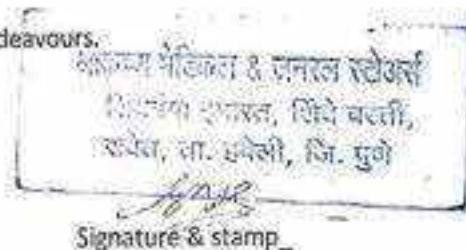 deavours.
मेडिकल & जनरल स्टोअर्स
इमारत, शिंदे वस्ती,
रावेत, ता. हवेली, जि. पुणे
Signature & stamp_